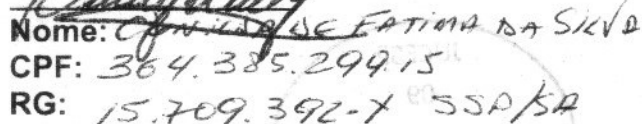 Nome: DE FATIMA DA SILVA
CPF: 364.385.299.15
RG: 15.709.392-X SSP/SP